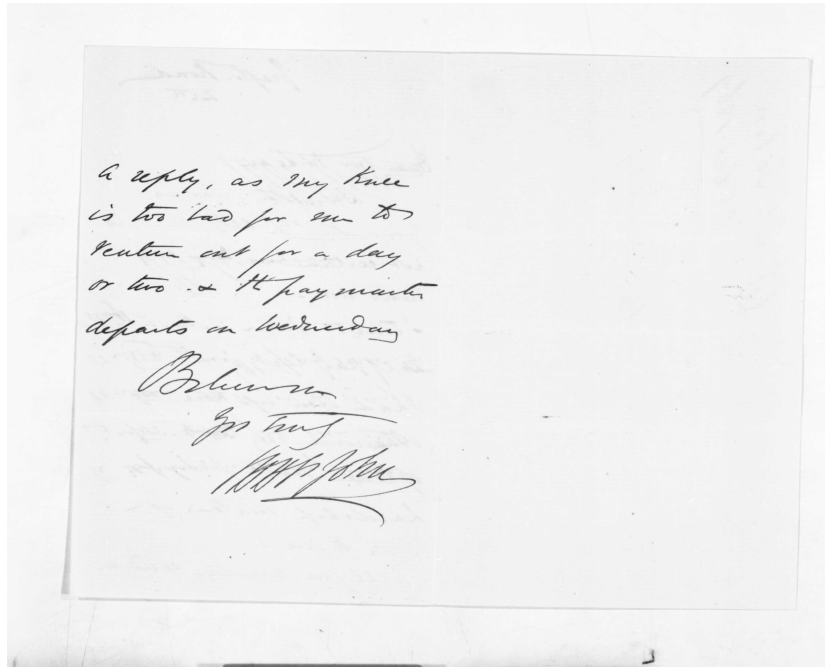 a reply, as my Knee
is too bad for me to
venture out for a day
or two - & the paymaster
departs on Wednesday
Believe me
Yrs truly
St John